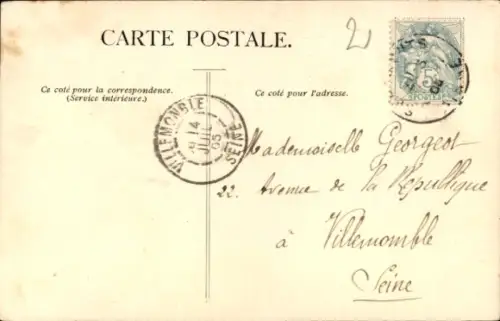 CARTE POSTALE.
2
5
Ce coté pour la correspondence.
(Service intérieure.)
Ce coté pour l'adresse.
VILLEMONBLE
14
JUIL
05
SEINE
Mademoiselle Georgeot
22. Avenue de la République
à Villemomble
Seine